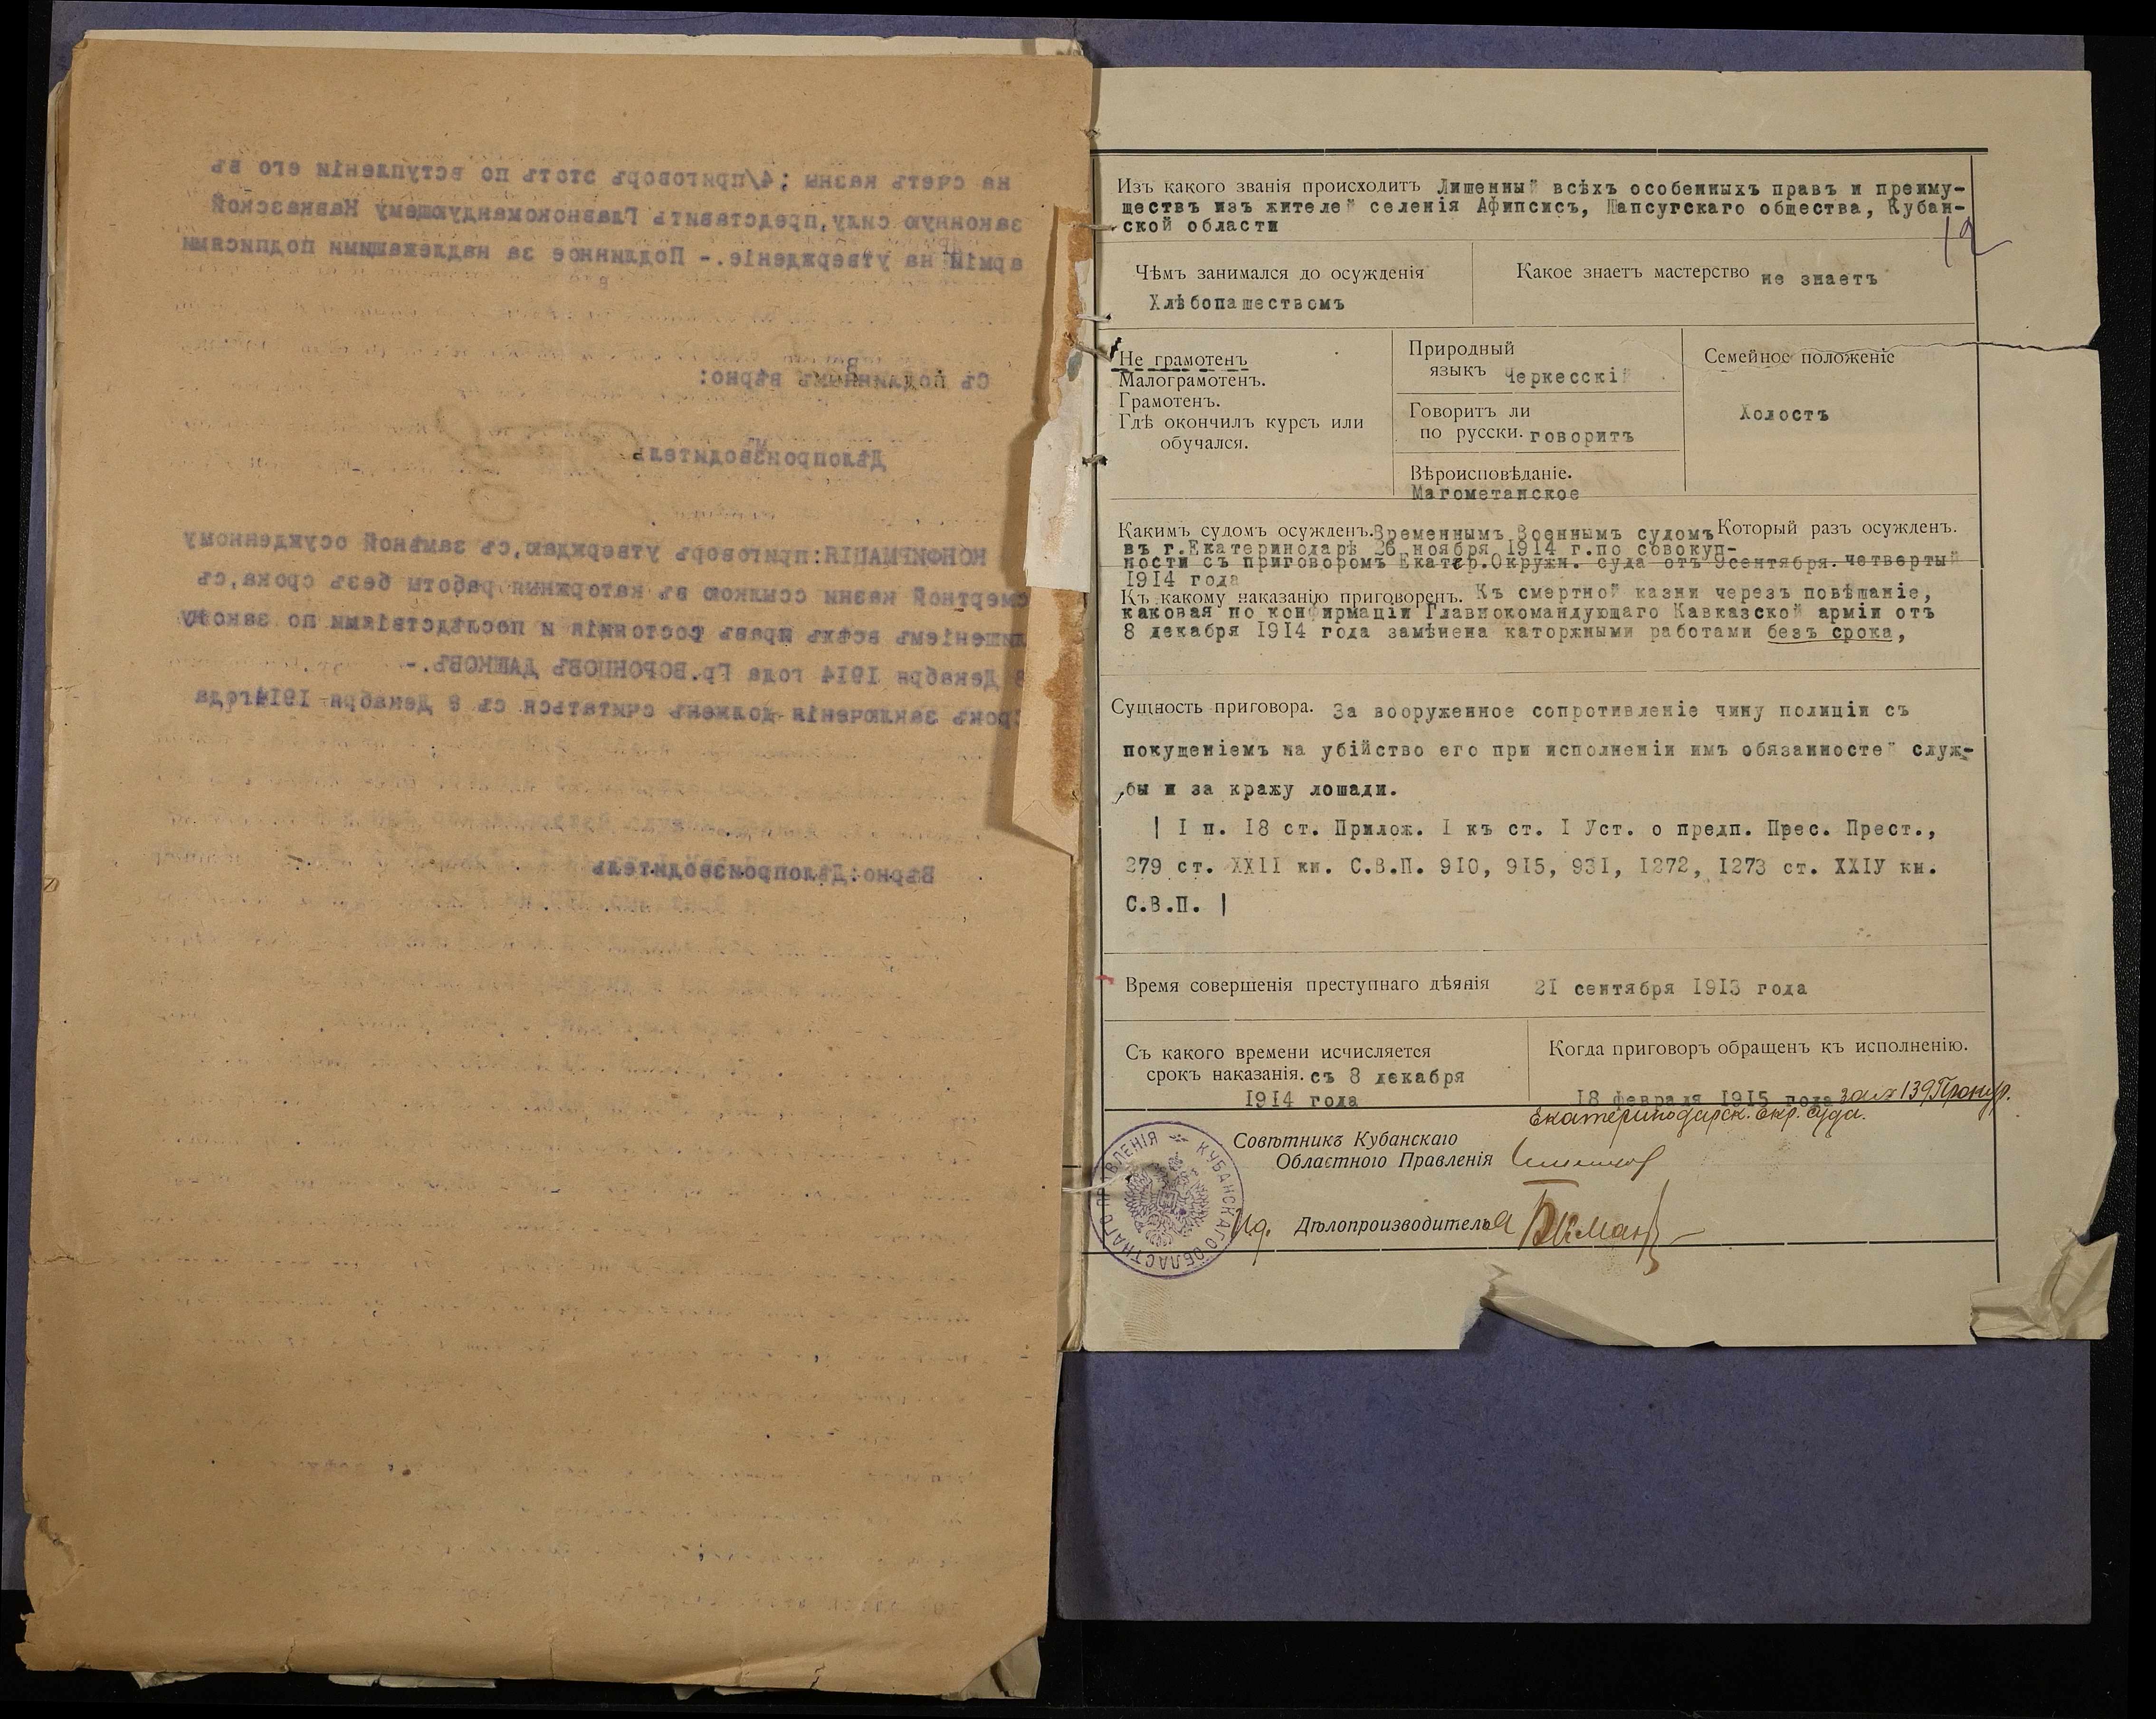 на счетъ казны ;4/приговоръ этотъ по вступленіи его въ
законную силу,представить Главнокомандующему Кавказской
арміи на утвержденіе.- Подлинное за надлежащими подписями
Съ подлиннымъ вѣрно:
Дѣлопроизводитель
КОНФИРМАЦІЯ:приговоръ утверждаю,съ замѣной осужденному
смертной казни ссылкою въ каторжныя работы безъ срока,съ
лишеніемъ всѣхъ правъ состоянія и послѣдствіями по закону
8 Декабря 1914 года Гр.ВОРОНЦОВЪ ДАШКОВЪ.-
Срокъ заключенія должен считаться съ 8 Декабря 1914года
Вѣрно:Дѣлопроизводитель
Изъ какого званія происходитъ Лишенный всѣхъ особенныхъ правъ и преиму-
ществъ изъ жителей селенія Афипсисъ, Шапсугскаго общества, Кубан-
ской области
12
Чѣмъ занимался до осужденія
Хлѣбопашествомъ
Какое знаетъ мастерство не знаетъ
Не грамотенъ
Малограмотенъ.
Грамотенъ.
Гдѣ окончилъ курсъ или
обучался.
Природный
языкъ Черкесскій
Говоритъ ли
по русски. говоритъ
Вѣроисповѣданіе.
Магометанское
Семейное положеніе
Холостъ
Какимъ судомъ осужденъ. Временнымъ Военнымъ судомъ Который разъ осужденъ.
въ г.Екатеринодарѣ 26 ноября 1914 г.по совокуп-
ности съ приговоромъ Екатер.Окружн. суда отъ 9сентября. четвертый
1914 года
Къ какому наказанію приговоренъ. Къ смертной казни черезъ повѣшаніе,
каковая по конфирмаціи Главнокомандующаго Кавказской арміи отъ
8 декабря 1914 года замѣнена каторжными работами безъ срока,
Сущность приговора. За вооруженное сопротивленіе чину полиціи съ
покушеніемъ на убійство его при исполненіи имъ обязанностей служ-
бы и за кражу лошади.
| I п. I8 ст. Прилож. I къ ст. I Уст. о предп. Прес. Прест.,
279 ст. XXII кн. С.В.П. 910, 915, 931, 1272, 1273 ст. XXIУ кн.
С.В.П. |
Время совершенія преступнаго дѣянія 21 сентября 1913 года
Съ какого времени исчисляется
срокъ наказанія. съ 8 декабря
1914 года
Когда приговоръ обращенъ къ исполненію.
18 февраля 1915 года за № 139 Прокур.
Екатеринодарск. Окр. Суда.
Совѣтникъ Кубанскаго
Областного Правленія
Ид. Дѣлопроизводителя
КУБАНСКАГО ОБЛАСТНАГО ПРАВЛЕНІЯ